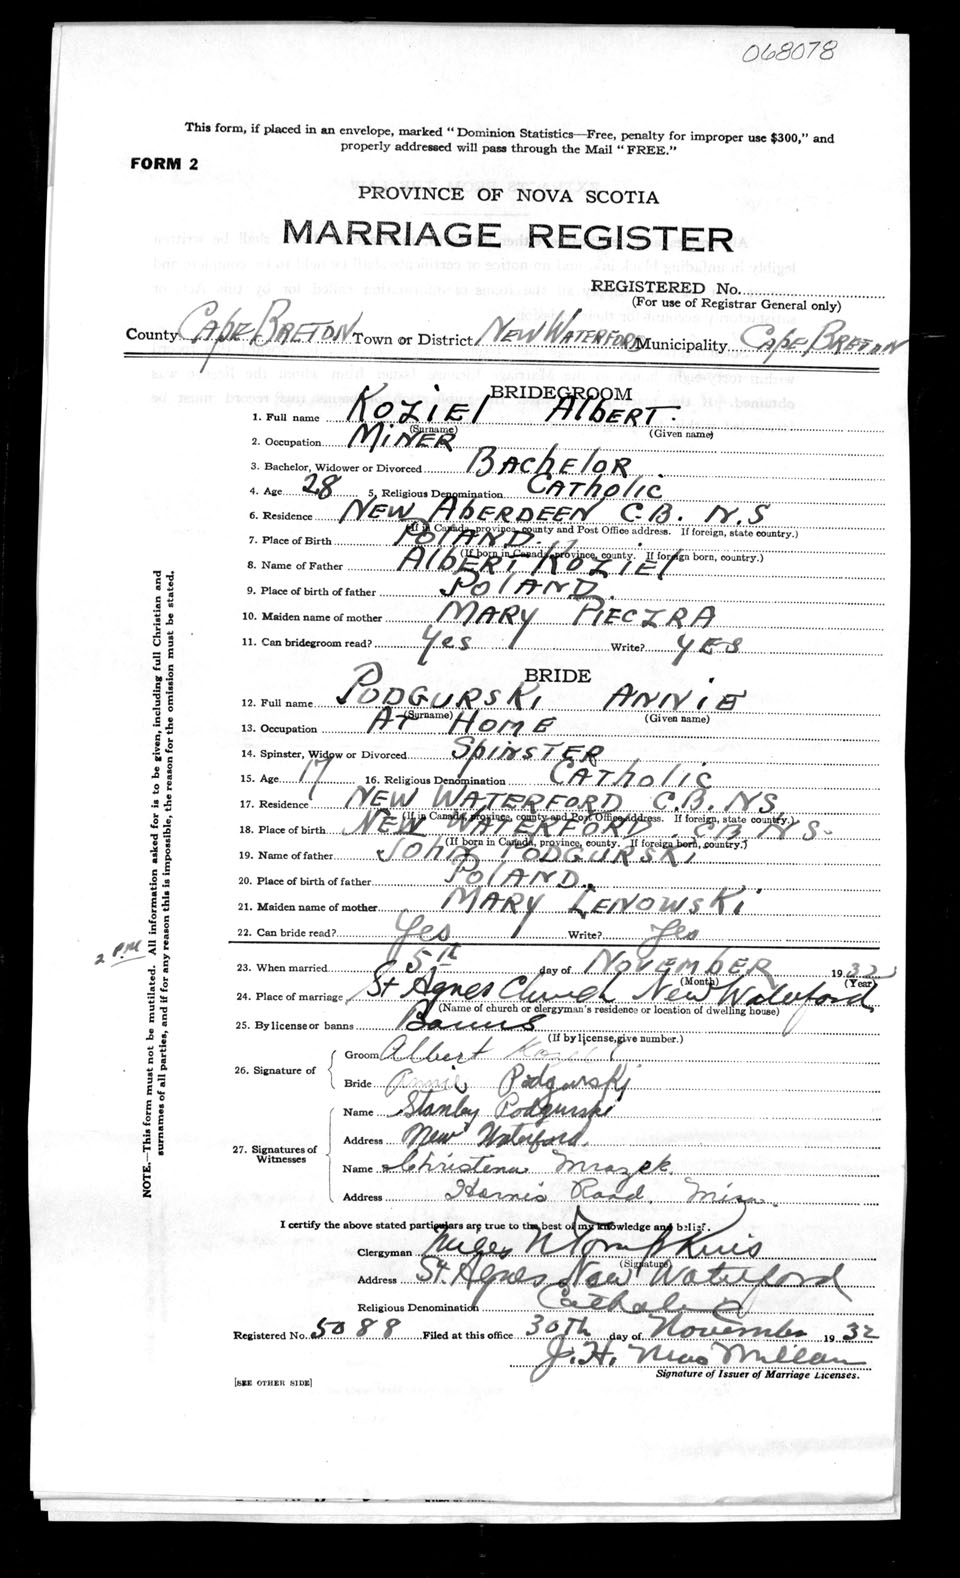 068078
This form, if placed in an envelope, marked "Dominion Statistics—Free, penalty for improper use $300," and
properly addressed will pass through the Mail "FREE."
FORM 2
PROVINCE OF NOVA SCOTIA
MARRIAGE REGISTER
REGISTERED No.
(For use of Registrar General only)
County Cape Breton Town or District New Waterford Municipality Cape Breton
BRIDEGROOM
1. Full name Koziel Albert
(Surname) (Given name)
2. Occupation Miner
3. Bachelor, Widower or Divorced Bachelor
4. Age 28 5. Religious Denomination Catholic
6. Residence New Aberdeen C.B. N.S
(If in Canada, province, county and Post Office address. If foreign, state country.)
7. Place of Birth Poland.
(If born in Canada, province, county. If foreign born, country.)
8. Name of Father Albert Koziel
9. Place of birth of father Poland.
10. Maiden name of mother Mary Pieczra
11. Can bridegroom read? Yes Write? Yes
BRIDE
12. Full name Podgurski Annie
(Surname) (Given name)
13. Occupation At Home
14. Spinster, Widow or Divorced Spinster
15. Age 17 16. Religious Denomination Catholic
17. Residence New Waterford C.B. N.S.
(If in Canada, province, county and Post Office address. If foreign, state country.)
18. Place of birth New Waterford. CB N S.
(If born in Canada, province, county. If foreign born, country.)
19. Name of father John Podgurski
20. Place of birth of father Poland.
21. Maiden name of mother Mary Lenowski
22. Can bride read? Yes Write? Yes
2 P.M
23. When married 5th day of November 1932
(Month) (Year)
24. Place of marriage St Agnes Church New Waterford
(Name of church or clergyman's residence or location of dwelling house)
25. By license or banns Banns
(If by license, give number.)
26. Signature of
Groom Albert Koziel
Bride Annie Podgurski
27. Signatures of Witnesses
Name Stanley Podgurski
Address New Waterford.
Name Christena Mrozek
Address Road.
I certify the above stated particulars are true to the best of my knowledge and belief.
Clergyman Tompkins
(Signature)
Address St. Agnes New Waterford
Religious Denomination Catholic
Registered No. 5088 Filed at this office 30th day of November 1932
J. H. MacMillan
Signature of Issuer of Marriage Licenses.
[SEE OTHER SIDE]
NOTE.—This form must not be mutilated. All information asked for is to be given, including full Christian and
surnames of all parties, and if for any reason this is impossible, the reason for the omission must be stated.